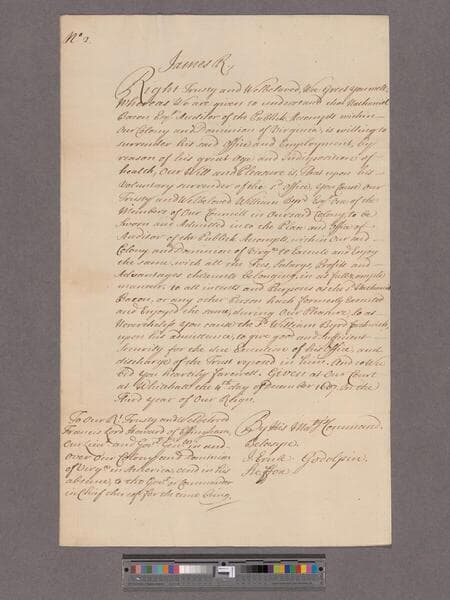 No 2
James R
Right Trusty and Welbeloved, Wee Greet you well,
Whereas We are given to understand that Nathaniel
Bacon Esqr. Auditor of the Publick Accompts within
Our Colony and Dominion of Virginia, is willing to
surrender his said Office and Employment, by
reason of his great Age and Indisposition of
health, Our Will and Pleasure is, That upon his
Voluntary surrender of the sd. Office, You Cause Our
Trusty and Welbeloved William Byrd Esqr. One of the
Members of Our Councill in Our said Colony, to be
Sworn and Admitted into the Place and Office of
Auditor of the Publick Accompts, within Our said
Colony and Dominion of Virga. to Execute and Enjoy
the same, with all the Fees, Salarys, Profits and
Advantages thereunto belonging, in as full & ample
manner, to all intents and Purposes as the sd. Nathaniel
Bacon, or any other Person hath formerly Executed
and Enjoy'd the same, during Our Pleasure, so as
Nevertheless You cause the sd. William Byrd forthwith,
upon his admittance, to give good and sufficient
Security for the due Execution of his Office, and
discharge of the Trust reposed in him. And so We
bid You heartily farewell. Given at Our Court
at Whitehall the 4th. day of December 1687. In the
Third year of Our Reign.
To Our Rt. Trusty and Welbeloved
Francis Lord Howard of Effingham,
Our Lieut. and Govr. Genll. in and
over Our Colony and Dominion
of Virga. in America, and in his
absence, to the Govr. or Commander
in Chief thereof for the time being.
By His Matys. Command.
Belasyse.
Godolphin.